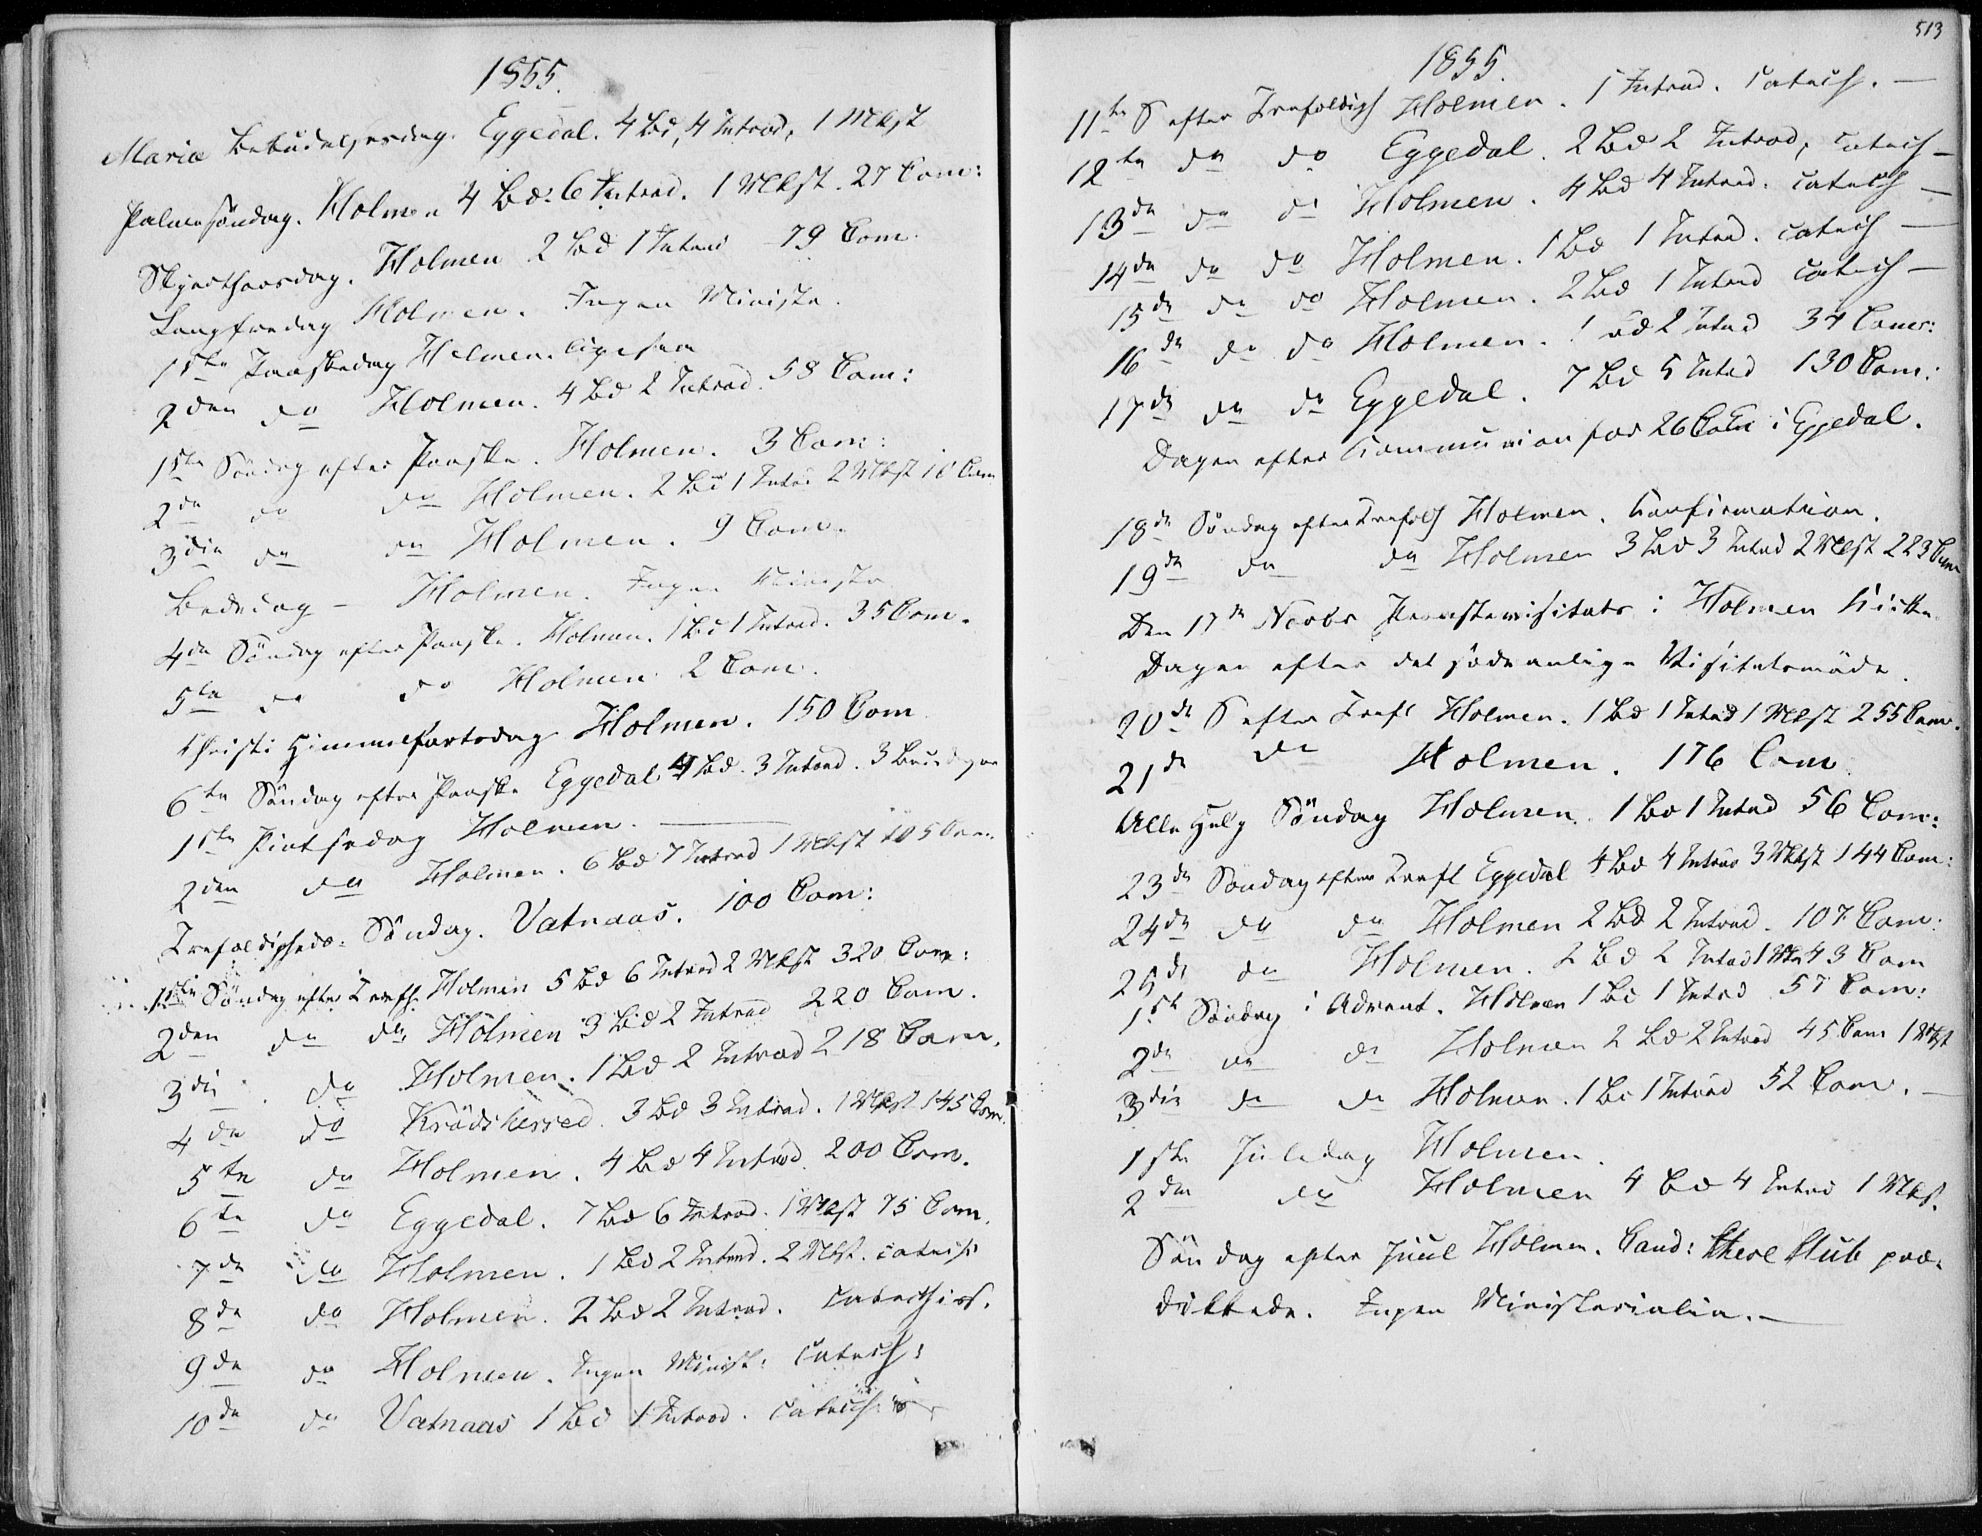 1855.
Mariæ Bebudelsesdag. Eggedal. 4 Bd, 4 Introd, 1 Mkst
Palmesöndag. Holmen 4 Bd: 6 Introd. 1 Mkst. 27 Com:
Skjærthorsdag. Holmen 2 Bd 1 Introd 79 Com.
Langfredag Holmen. Ingen Ministr.
1ste Paaskedag Holmen. ligesaa
2den do Holmen. 4 Bd 2 Introd. 58 Com:
1ste Söndag efter Paaske. Holmen. 3 Com:
2den do do Holmen. 2 Bd 1 Introd 2 Mkst 10 Com
3die do do Holmen. 9 Com.
Bededag – Holmen. Ingen Ministr
4de Söndag efter Paaske. Holmen. 1 Bd 1 Introd. 35 Com.
5te do do Holmen 2 Com.
Christi Himmelfartsdag Holmen. 150 Com
6te Söndag efter Paaske Eggedal 4 Bd. 3 Introd. 3
1ste Pintsedag Holmen. —
2den do Holmen. 6 Bd 7 Introd 1 Mkst 105 Com.
Trefoldigheds: Söndag. Vatnaas. 100 Com:
1ste Söndag efter Trefh. Holmen 5 Bd 6 Introd 2 Mkst 320 Com:
2den do do Holmen 3 Bd 2 Introd 220 Com.
3die do Holmen. 1 Bd 2 Introd 218 Com.
4de do Krödsherred. 3 Bd 3 Introd. 1 Mkst 145 Com.
5te do Holmen. 4 Bd 4 Introd 200 Com.
6te do Eggedal. 7 Bd 6 Introd. 1 Mkst 75 Com.
7de do Holmen. 1 Bd 2 Introd. 2 Mkst. Catechis
8de do Holmen. 2 Bd 2 Introd. Catechis.
9de do Holmen. Ingen Minist: Catech:
10de do Vatnaas 1 Bd 1 Introd. Catech:
513
1855.
11te S efter Trefoldigh Holmen. 1 Introd. Catech. —
12te do do Eggedal. 2 Bd 2 Introd, Catech –
13de do do Holmen. 4 Bd 4 Introd. Catech –
14de do do Holmen. 1 Bd 1 Introd. Catech –
15de do do Holmen. 2 Bd 1 Introd Catech –
16de do do Holmen. 1 Bd 2 Introd 34 Com:
17de do do Eggedal. 7 Bd 5 Introd 130 Com:
Dagen efter Communion for 26 i Eggedal.
18de Söndag efter Trefold Holmen. Confirmation.
19de do do Holmen 3 Bd 3 Introd 2 Mkst 223 Com
Den 17de Novbr Provstevisitats i Holmen Kirke.
Dagen efter det sædvanlige Visitatsmöde.
20de S efter Trefl Holmen. 1 Bd 1 Introd 1 Mkst 255 Com.
21de do Holmen. 176 Com
Alle Helg Söndag Holmen. 1 Bd 1 Introd 56 Com:
23de Söndag efter Trefl Eggedal 4 Bd 4 Introd 3 Mkst 144 Com:
24de do do Holmen 2 Bd 2 Introd. 107 Com:
25de do Holmen. 2 Bd 2 Introd 1 Mkst 43 Com
1ste Söndag i Advent. Holmen 1 Bd 1 Introd 57 Com:
2den do do Holmen 2 Bd 2 Introd 45 Com 1 Mkst
3die do do Holmen. 1 Bd 1 Introd 52 Com. –
1ste Juledag Holmen.
2den do Holmen 4 Bd 4 Introd 1 Mkst.
Söndag efter Juul Holmen. Cand: Stub præ-
dikede. Ingen Ministerialia. —